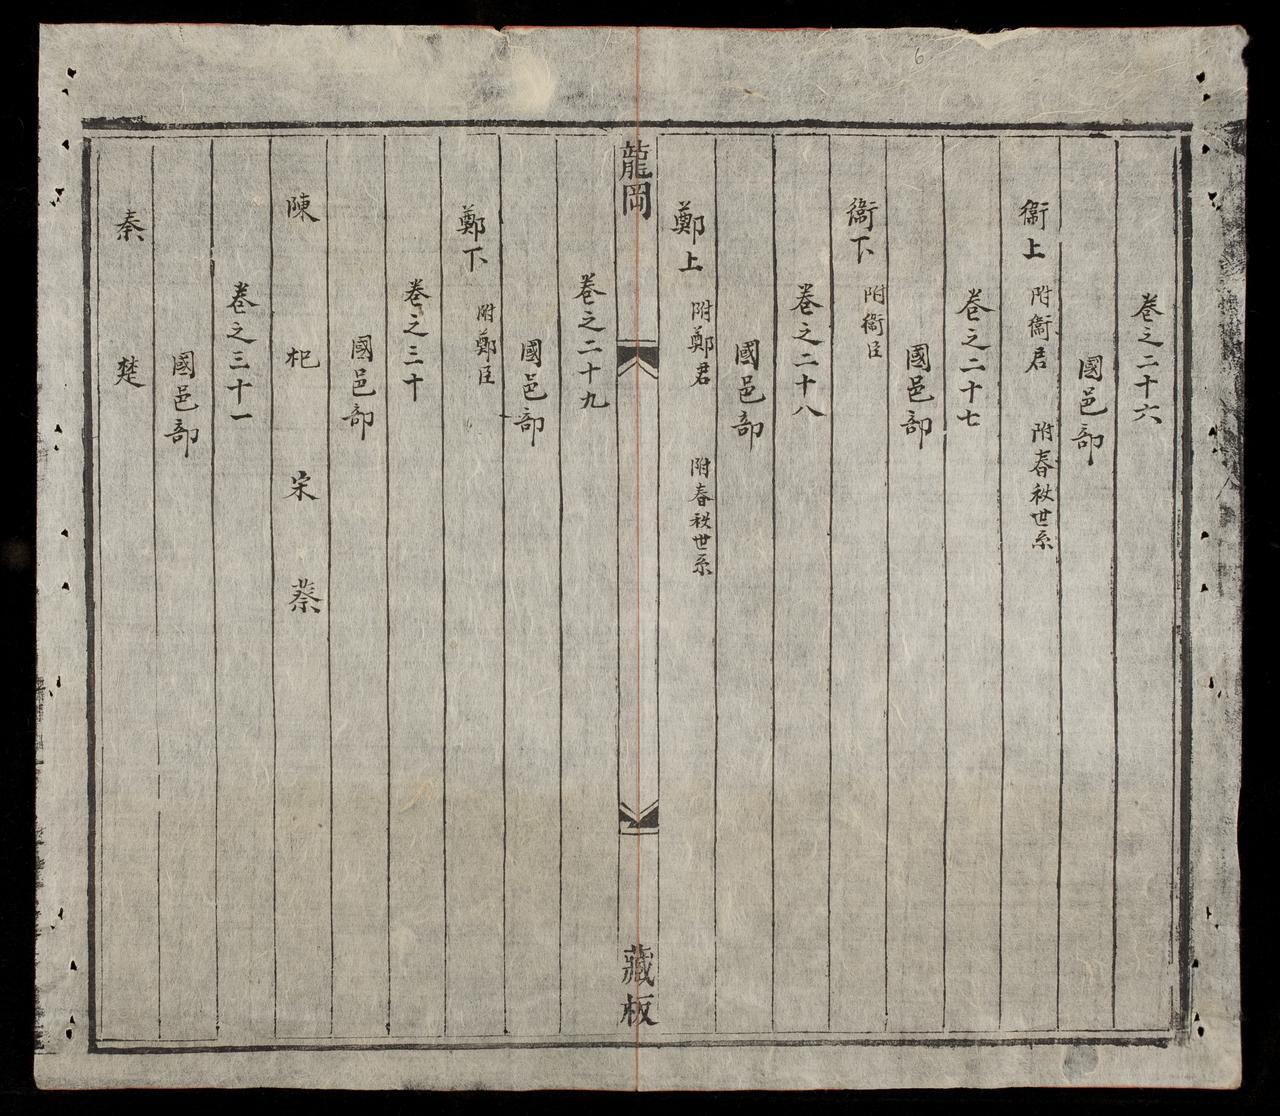 卷之二十六
國邑部
衞上 附衞君 附春秋世系
卷之二十七
國邑部
衞下 附衞臣
卷之二十八
國邑部
鄭上 附鄭君 附春秋世系
龍岡
藏板
卷之二十九
國邑部
鄭下 附鄭臣
卷之三十
國邑部
陳 杞 宋 蔡
卷之三十一
國邑部
秦 楚
6